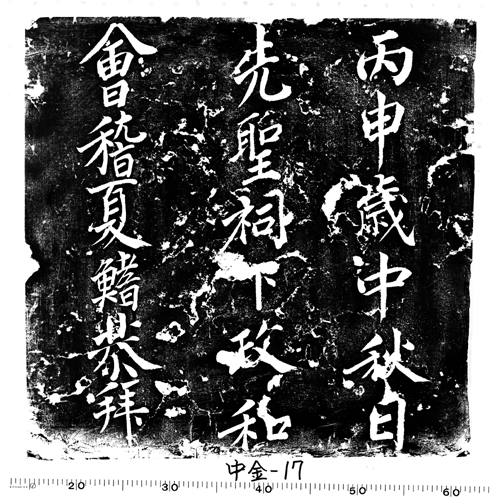 會稽夏鰭恭拜
先聖祠下政和
丙申歲中秋日
中金-17
20 30 40 50 60